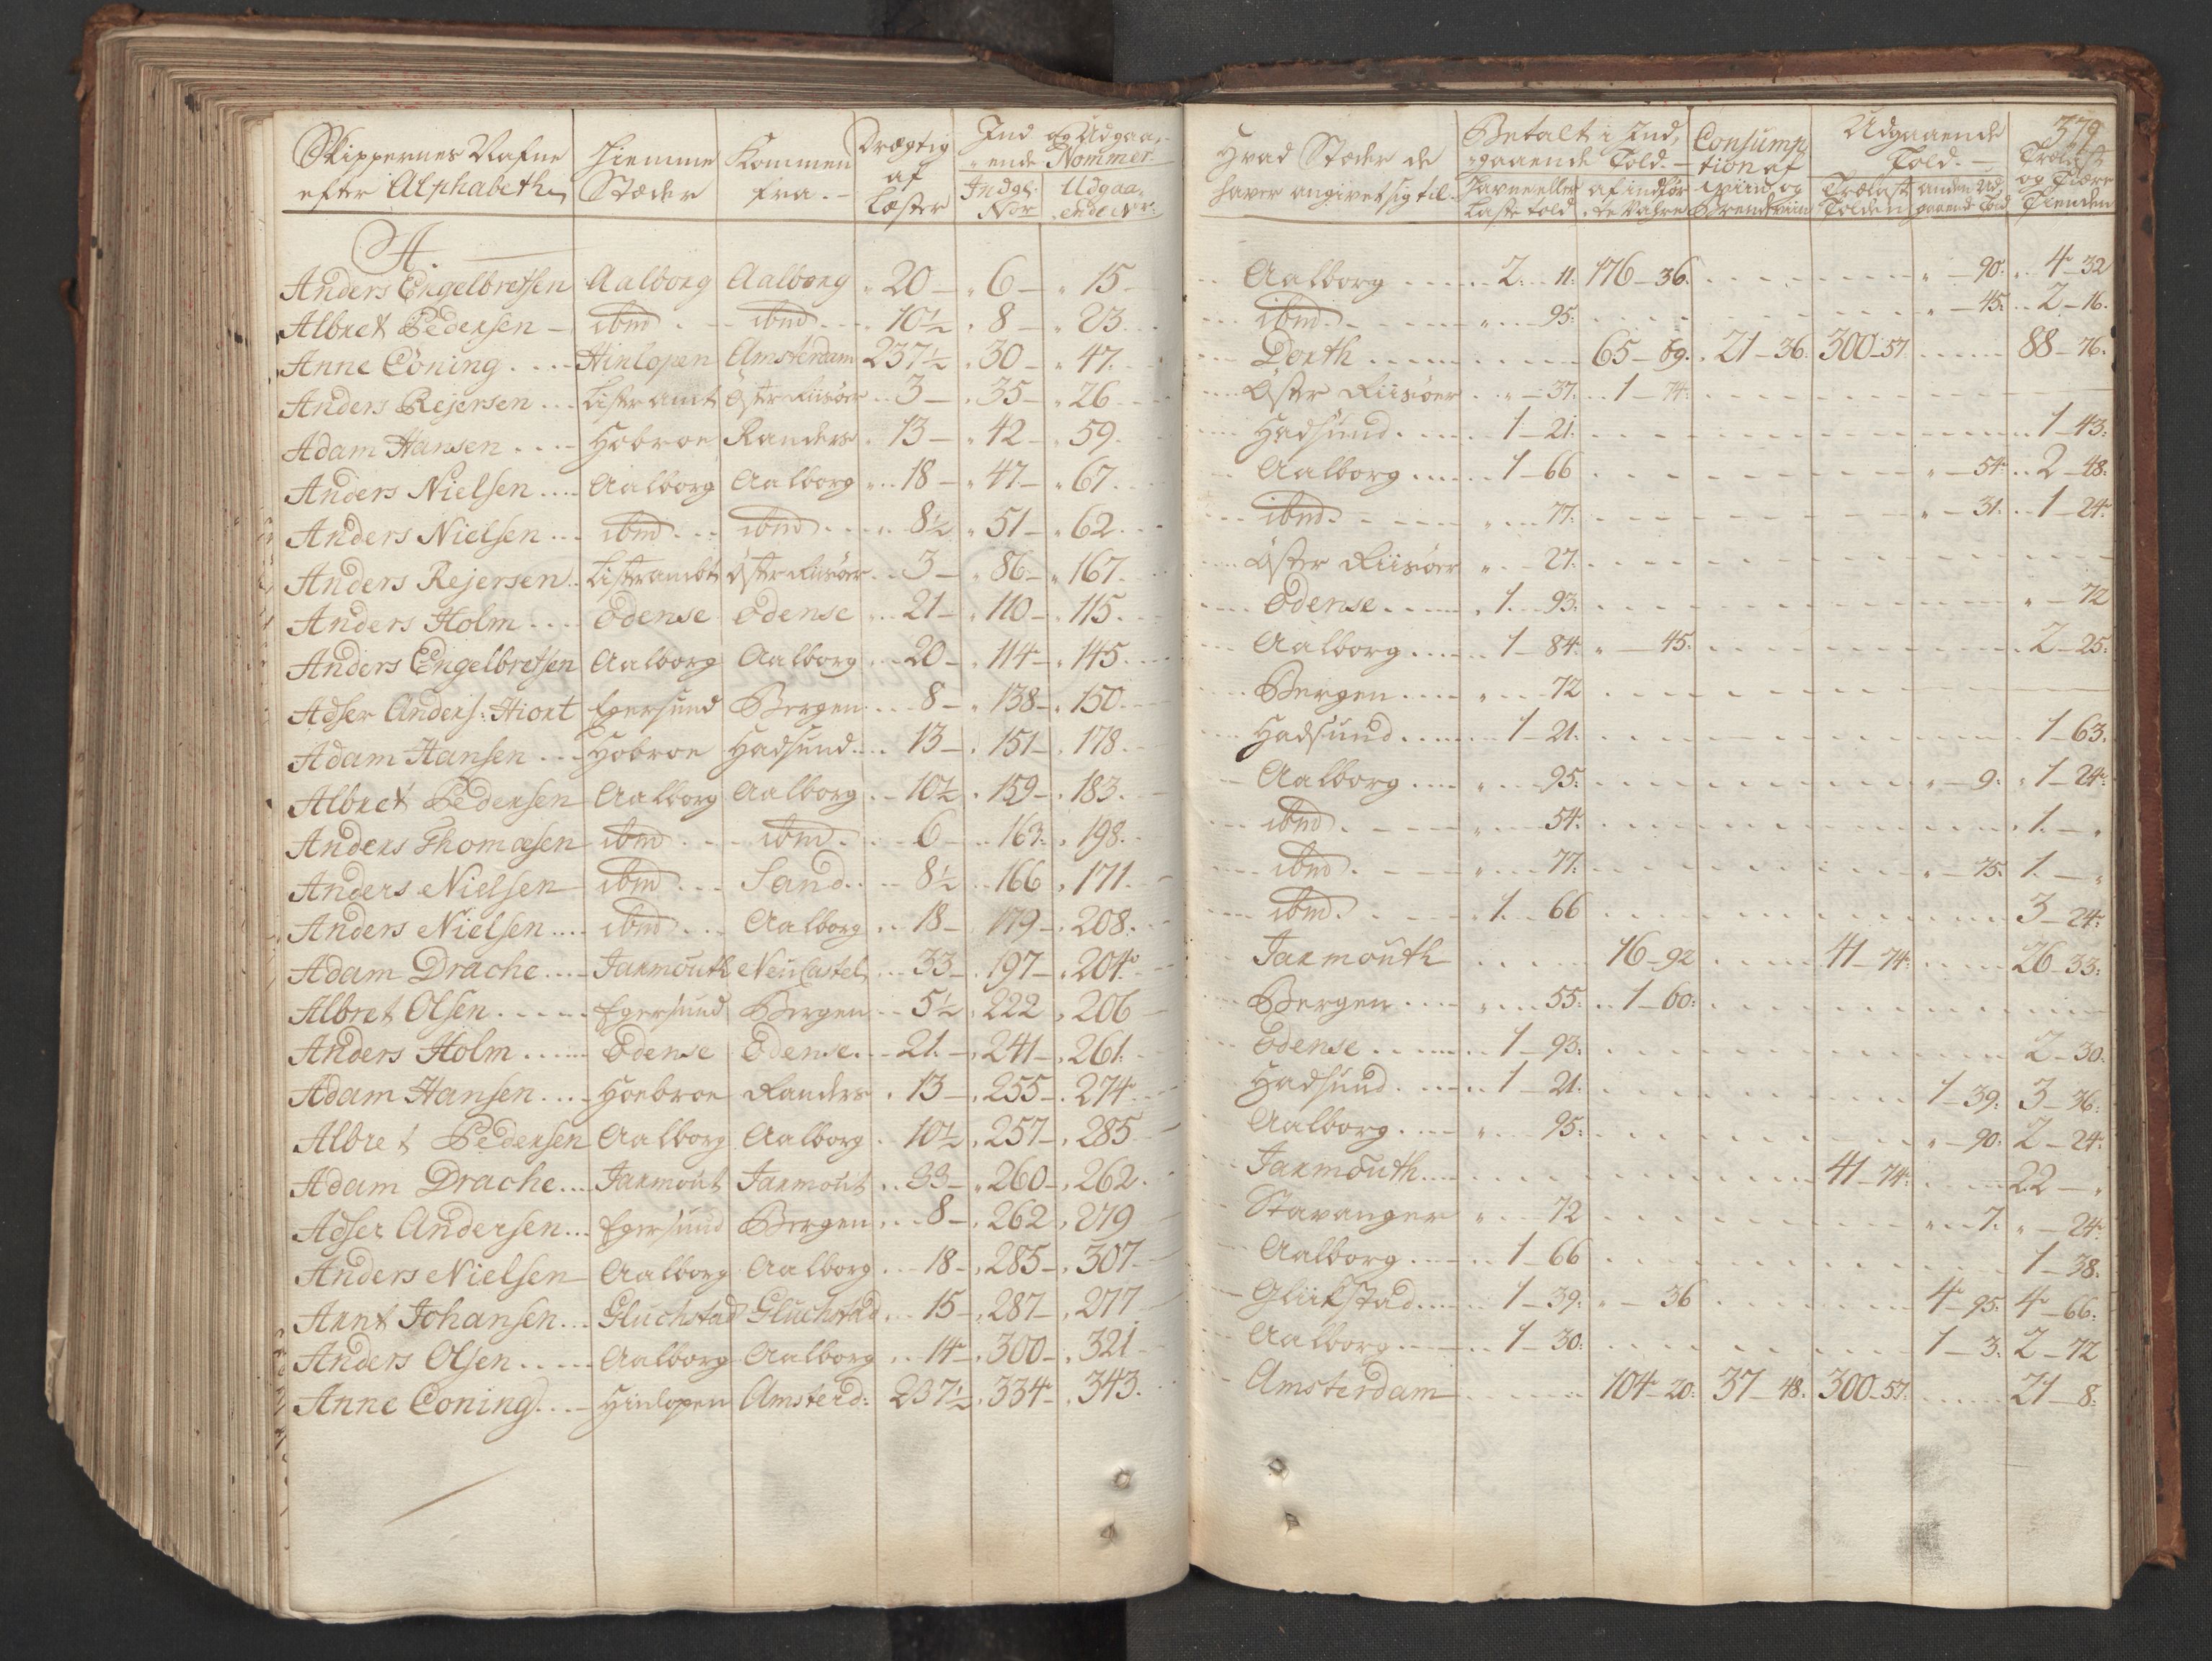 Skippernes Nafne efter Alphabethen | Hiemme Stæder | Kommen fra. | Drægtig af Læster | Ind og Udgaaende Nommer | Indgl: Nor | Udgaaende Nr:
A.
Anders Engelbretsen | Aalborg | Aalborg | 20 | 6 | 15
Albret Pedersen | ibnd | ibnd | 10½ | 8 | 23
Anne Coning | Hinlopen | Amsterdam | 237½ | 30 | 47
Anders Rejersen | Listeramt | Öster Riisöer | 3 | 35 | 26
Adam Hansen | Hobroe | Randers | 13 | 42 | 59
Anders Nielsen | Aalborg | Aalborg | 18 | 47 | 67
Anders Nielsen | ibnd | ibnd | 8½ | 51 | 62
Anders Rejersen | Listerambt | Öster Riisöer | 3 | 86 | 167
Anders Holm | Odense | Odense | 21 | 110 | 115
Anders Engelbretsen | Aalborg | Aalborg | 20 | 114 | 145
Adser Anders: Hiort | Egersund | Bergen | 8 | 138 | 150
Adam Hansen | Hobroe | Hadsund | 13 | 151 | 178
Albret Pedersen | Aalborg | Aalborg | 10½ | 159 | 183
Anders Thomæsen | ibnd | ibnd | 6 | 163 | 198
Anders Nielsen | ibnd | Sand | 8½ | 166 | 171
Anders Nielsen | ibnd | Aalborg | 18 | 179 | 208
Adam Drache | Jarmouth | NeuCastel | 33 | 197 | 204
Albret Olsen | Egersund | Bergen | 5½ | 222 | 206
Anders Holm | Odense | Odense | 21 | 241 | 261
Adam Hansen | Hoebroe | Randers | 13 | 255 | 274
Albret Pedersen | Aalborg | Aalborg | 10½ | 257 | 285
Adam Drache | Jarmout | Jarmout | 33 | 260 | 262
Adser Andersen | Egersund | Bergen | 8 | 262 | 279
Anders Nielsen | Aalborg | Aalborg | 18 | 285 | 307
Arnt Johansen | Gluchstad | Gluchstad | 15 | 287 | 277
Anders Olsen | Aalborg | Aalborg | 14 | 300 | 321
Anne Coning | Hinlopen | Amsterd: | 237½ | 334 | 343
379
Hvad Stæder de haver angivet sig til | Betalt i Indgaaende Told. | Havne eller Laste told | af indförte Vahre | Consumption af Viin og Brendeviin | Udgaaende Told. | Trælast Tolden | anden Udgaaende Told | Trælast og Tiære Tienden
Aalborg | 2 11 | 176 36 | | | 90 | 4 32
ibnd | 95 | | | | 45 | 2 16
Dorth | | 65 69 | 21 36 | 300 57 | | 88 76
Öster Riisöer | 37 | 1 74
Hadsund | 1 21 | | | | | 1 43
Aalborg | 1 66 | | | | 54 | 2 48
ibnd | 77 | | | | 31 | 1 24
Öster Riisöer | 27
Odense | 1 93 | | | | | 72
Aalborg | 1 84 | 45 | | | | 2 25
Bergen | 72
Hadsund | 1 21 | | | | | 1 63
Aalborg | 95 | | | | 9 | 1 24
ibnd | 54 | | | | | 1
ibnd | 77 | | | | 75 | 1
ibnd | 1 66 | | | | | 3 24
Jarmouth | | 16 92 | | 41 74 | | 26 33
Bergen | 55 | 1 60
Odense | 1 93 | | | | | 2 30
Hadsund | 1 21 | | | | 1 39 | 3 36
Aalborg | 95 | | | | 90 | 2 24
Jarmouth | | | | 41 74 | | 22
Stavanger | 72 | | | | 7 | 24
Aalborg | 1 66 | | | | | 1 38
Glükstad | 1 39 | 36 | | | 4 95 | 4 66
Aalborg | 1 30 | | | | 1 3 | 2 72
Amsterdam | | 104 20 | 37 48 | 300 57 | | 21 8